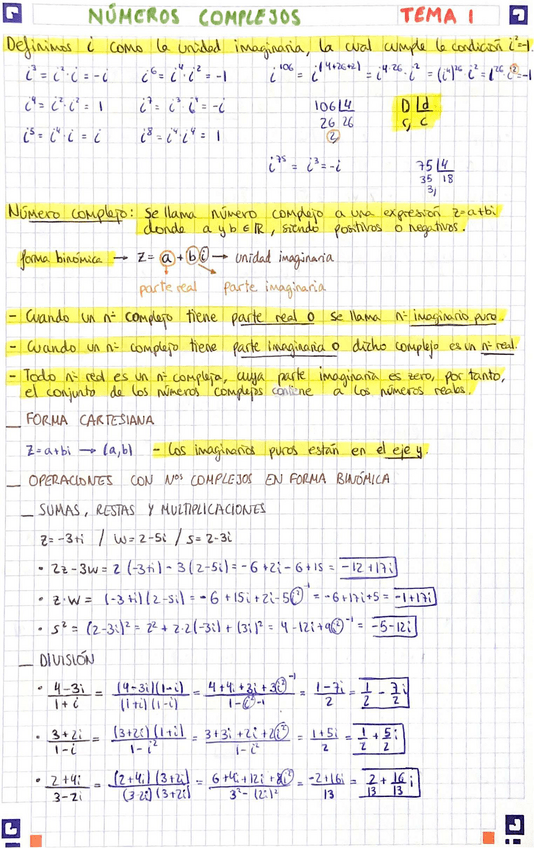 NÚMEROS COMPLEJOS TEMA 1
Definimos i como la unidad imaginaria, la cual cumple la condición i²=-1.
i³ = i²·i = -i i⁶ = i⁴·i² = -1 i¹⁰⁶ = i⁽⁴⁺²⁶⁺²⁾ = i⁴·²⁶·i² = (i⁴)²⁶ i² = 1²⁶ i² = -1
i⁴ = i²·i² = 1 i⁷ = i³·i⁴ = -i 106 |4 D |d
26 26 r, c
i⁵ = i⁴·i = i i⁸ = i⁴·i⁴ = 1 2,
i⁷⁵ = i³ = -i 75 |4
35 18
3,
Número complejo: Se llama número complejo a una expresión z=a+bi
donde a y b ∈ ℝ, siendo positivos o negativos.
forma binómica → z = a + b i → unidad imaginaria
parte real parte imaginaria
- Cuando un nº complejo tiene parte real 0 se llama nº imaginario puro.
- Cuando un nº complejo tiene parte imaginaria 0 dicho complejo es un nº real.
- Todo nº real es un nº complejo, cuya parte imaginaria es zero, por tanto,
el conjunto de los números complejos contiene a los números reales.
_ FORMA CARTESIANA
z=a+bi → (a,b) - Los imaginarios puros están en el eje y.
_ OPERACIONES CON Nºs COMPLEJOS EN FORMA BINÓMICA
_ SUMAS, RESTAS Y MULTIPLICACIONES
z=-3+i / w=2-5i / s=2-3i
• 2z-3w = 2(-3+i) - 3(2-5i) = -6+2i-6+15 = -12+17i
• z·w = (-3+i)(2-5i) = -6+15i+2i-5i² ⁻¹ = -6+17i+5 = -1+17i
• s² = (2-3i)² = 2²+2·2(-3i)+(3i)² = 4-12i+9i² ⁻¹ = -5-12i
_ DIVISIÓN
• 4-3i / 1+i = (4-3i)(1-i) / (1+i)(1-i) = 4+4i+3i+3i² ⁻¹ / 1-i² -1 = 1-7i / 2 = 1/2 - 7/2 i
• 3+2i / 1-i = (3+2i)(1+i) / 1-i² = 3+3i+2i+2i² / 1-i² = 1+5i / 2 = 1/2 + 5/2 i
• 2+4i / 3-2i = (2+4i)(3+2i) / (3-2i)(3+2i) = 6+4i+12i+8i² / 3²-(2i)² = -2+16i / 13 = 2/13 + 16/13 i